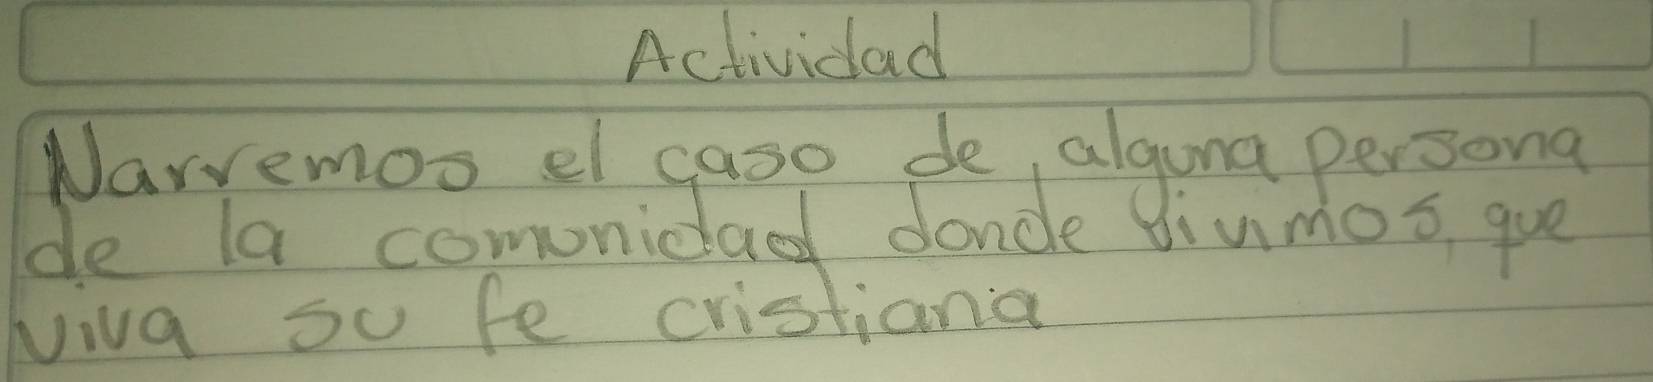 Actividad
Narremos el caso de, alguna persona
de la comunidad donde vivimos, que
viva su fe cristiana